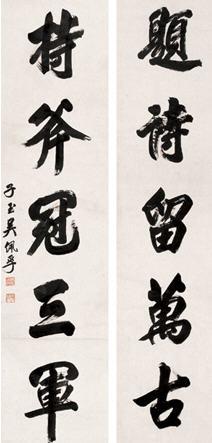 題詩留萬古
持斧冠三軍
子玉吳佩孚